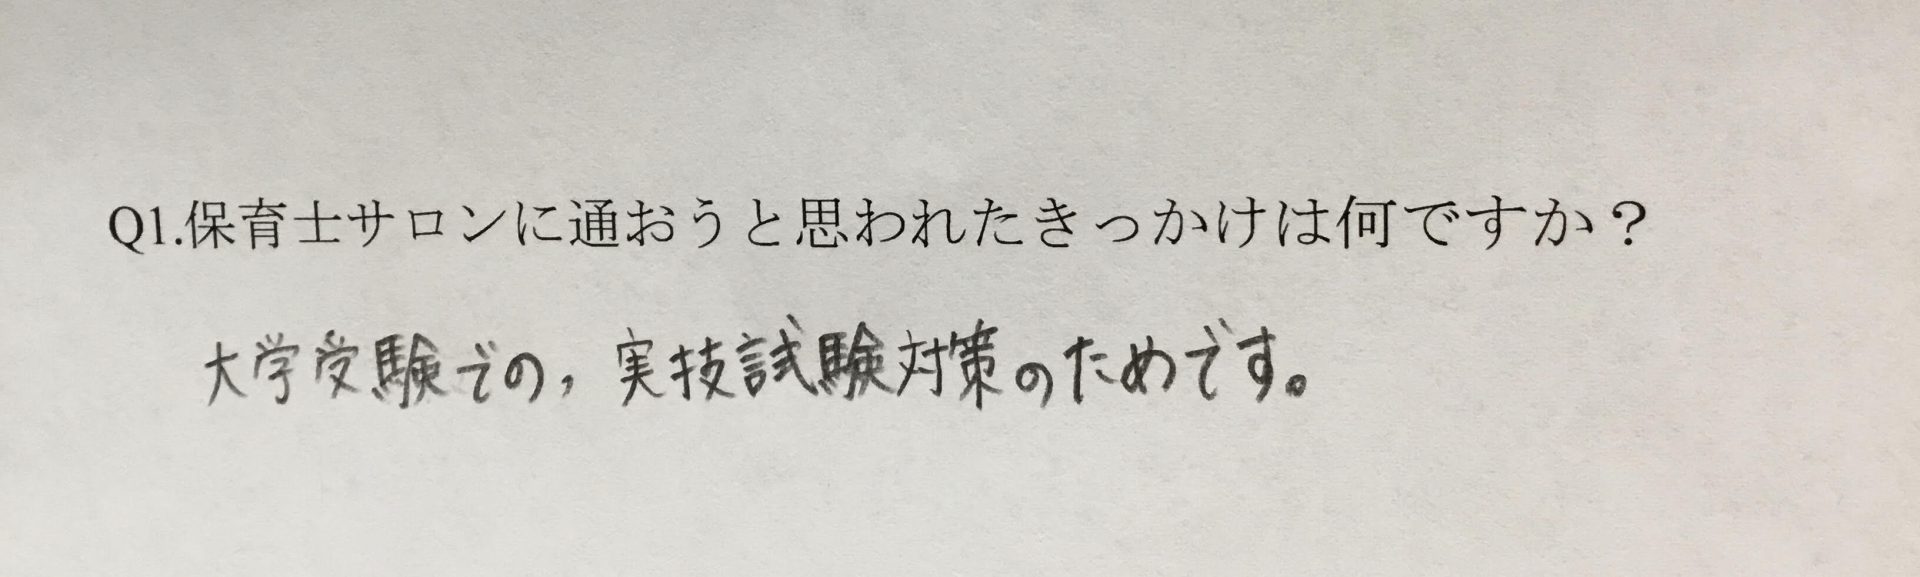 Q1.保育士サロンに通おうと思われたきっかけは何ですか？
大学受験での,実技試験対策のためです。